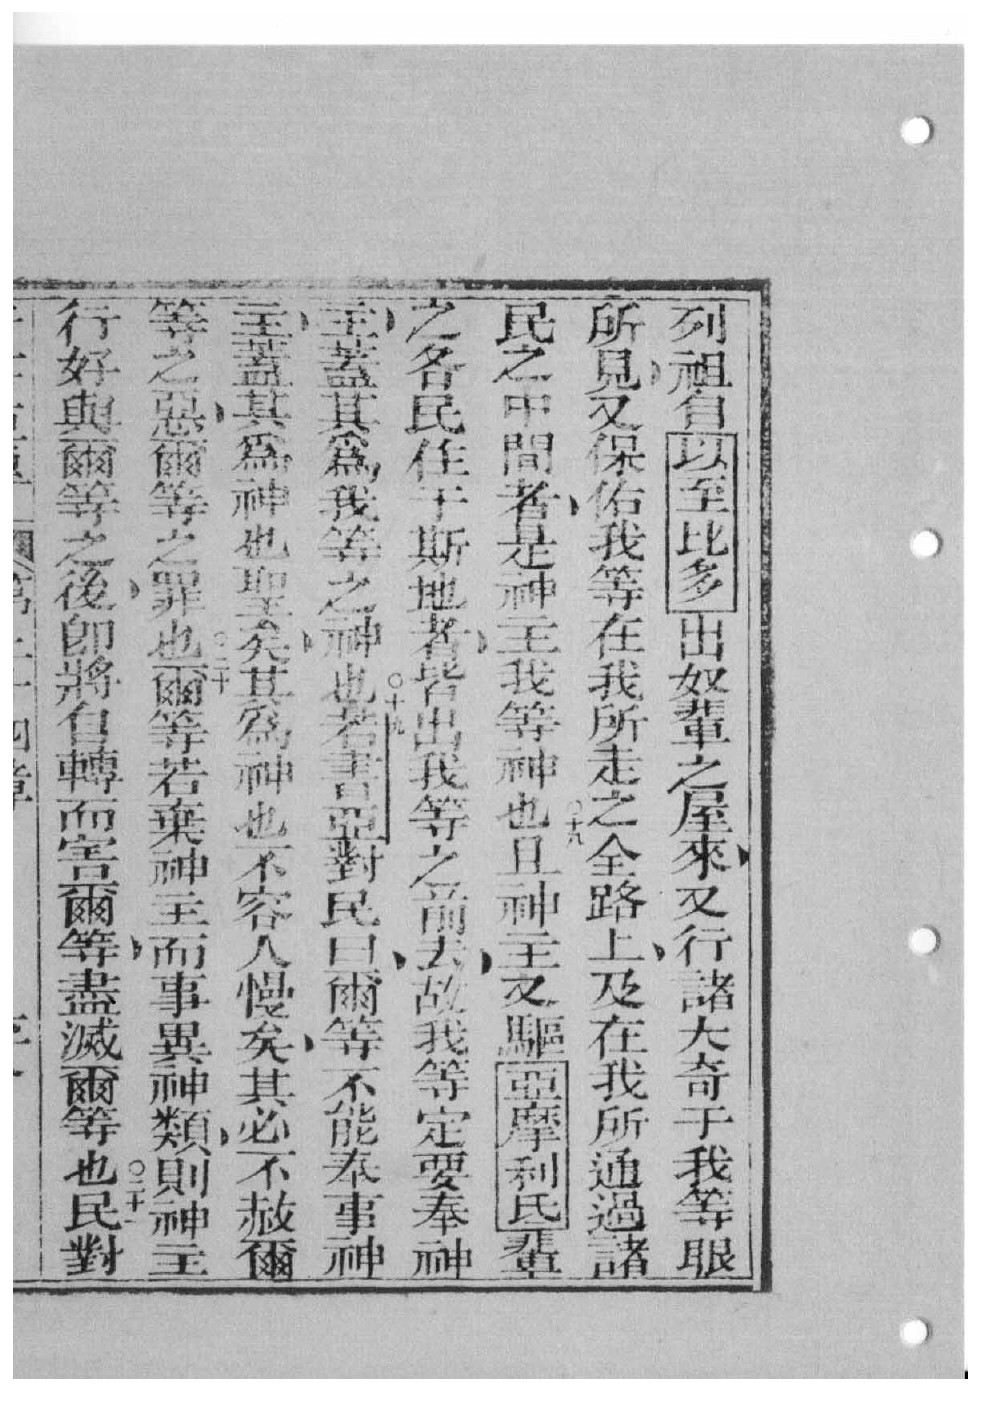 列祖自以至比多出奴輩之屋來又行諸大奇于我等眼
所見又保佑我等在我所走之全路上及在我所通過諸
○十九
民之中間者是神主我等神也且神主又驅亞摩利氏輩
之各民住于斯地者皆出我等之前去故我等定要奉神
○十九
主蓋其為我等之神也若書亞對民曰爾等不能奉事神
主蓋其爲神也聖矣其爲神也不容人慢矣其必不赦爾
○二十
等之惡爾等之罪也爾等若棄神主而事異神類則神主
行好與爾等之後卽將自轉而害爾等盡滅爾等也民對
○二十一